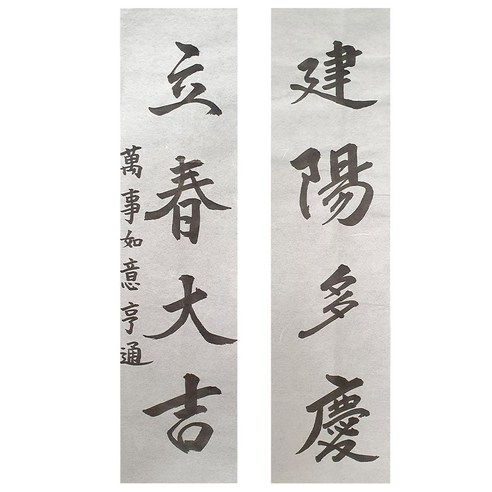 建陽多慶
立春大吉
萬事如意亨通